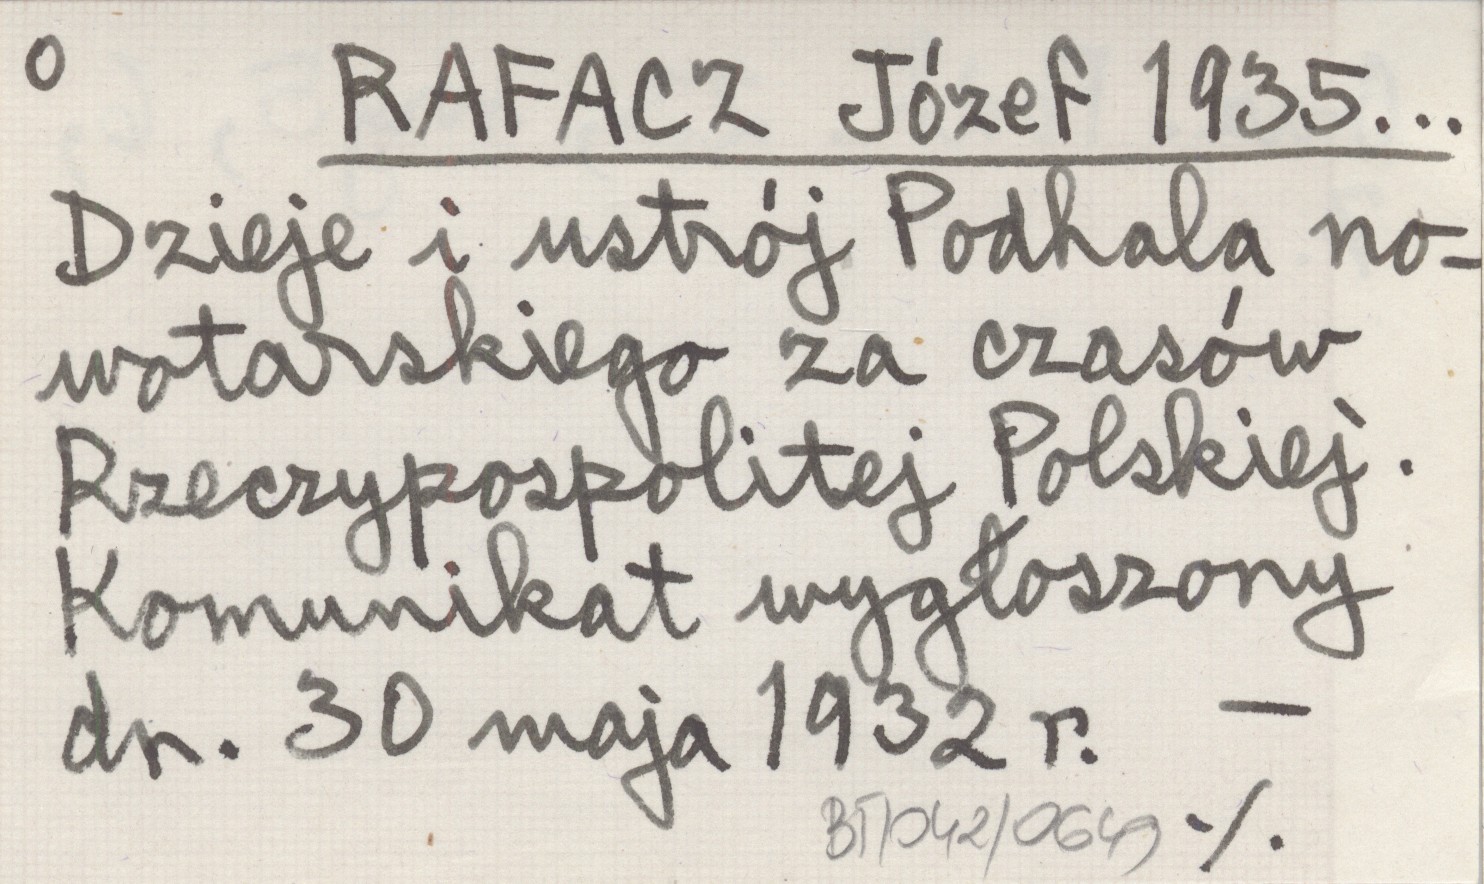 O RAFACZ Józef 1935...
Dzieje i ustrój Podhala no=
wotarskiego za czasów
Rzeczypospolitej Polskiej.
Komunikat wygłoszony
dn. 30 maja 1932 r. —
BT/042/0649 ·/.